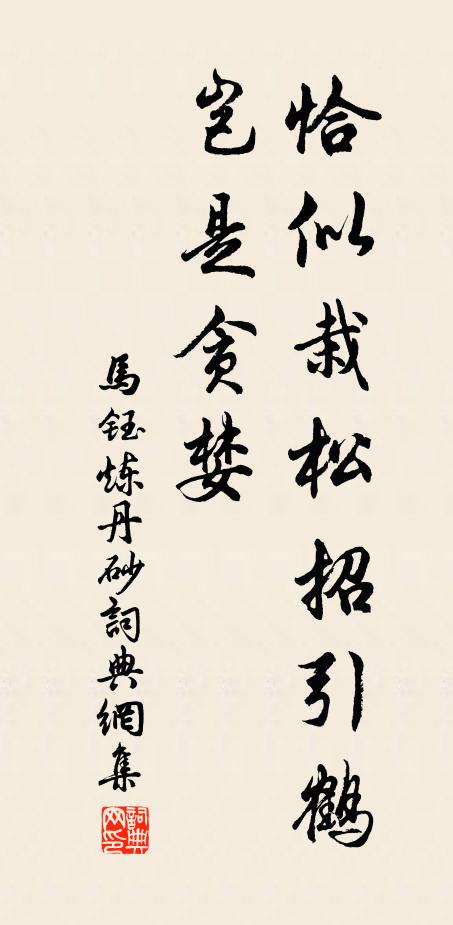 恰似栽松招引鶴
豈是贪婪
馬鈺炼丹砂詞典網集
詞典网印